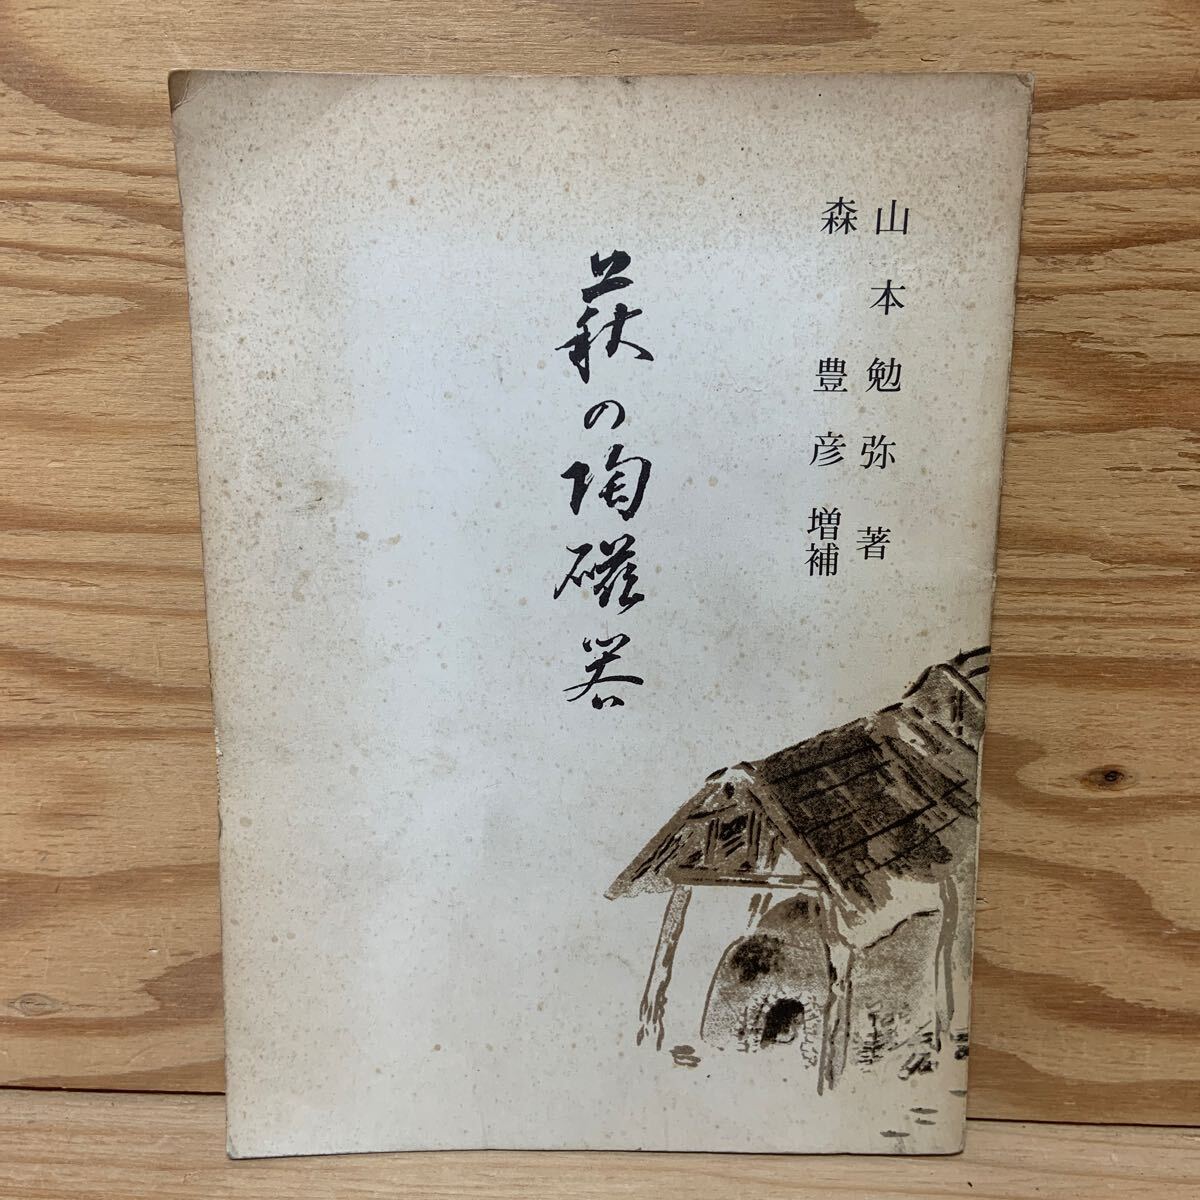 山本勉弥著
森豊彦増補
萩の陶磁器